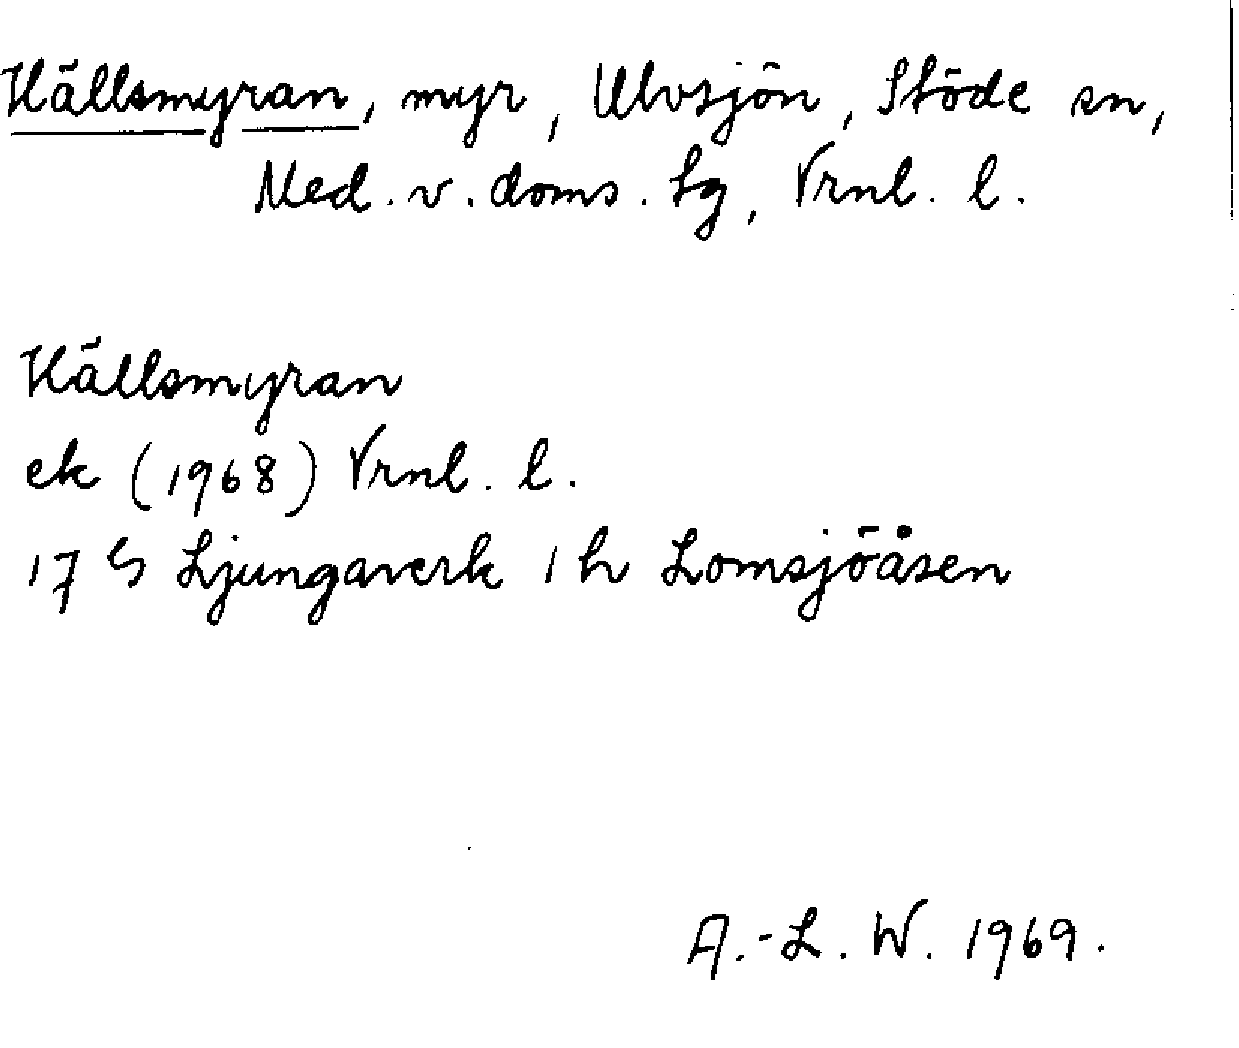 Källsmyran, myr, Ulvsjön, Stöde sn,
Med. v. doms. tg, Vrnl. l.
Källsmyran
ek (1968) Vrnl. l.
17 G Ljungaverk 1 h Lomsjöåsen
A.-L. W. 1969.